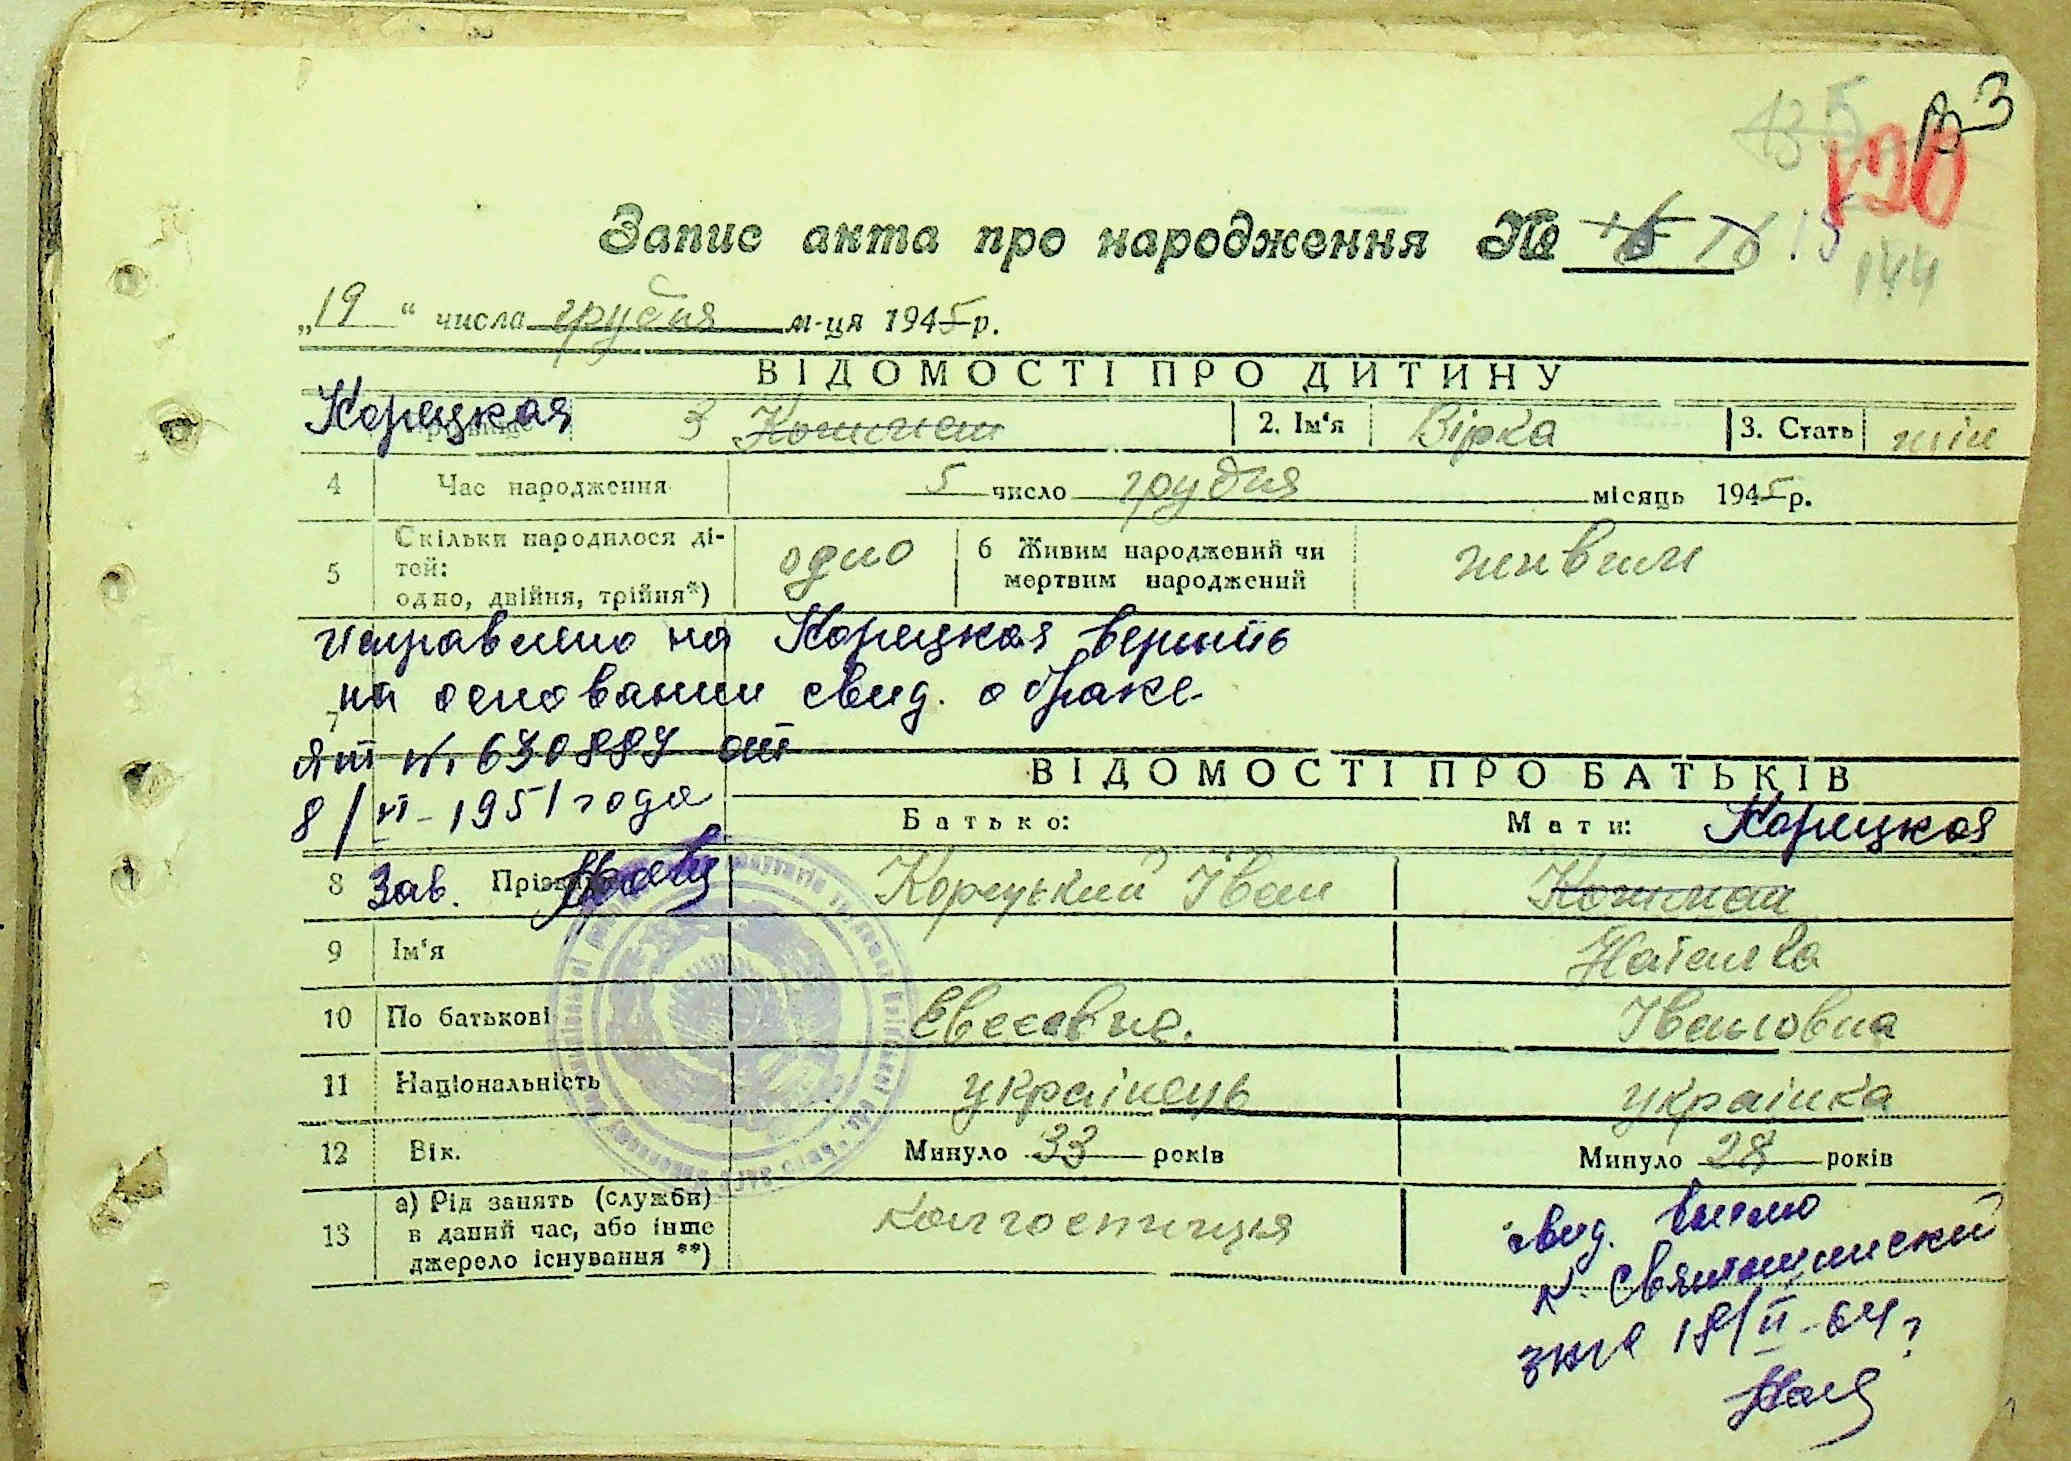 В 3
120
144
Запис акта про народження № 16 15
„19“ числа грудня м-ця 1945 р.
ВІДОМОСТІ ПРО ДИТИНУ
Корецкая 3 2. Ім‘я Вірка 3. Стать жін
4 Час народження 5 число грудня місяць 1945 р.
5 Скільки народилося ді-
тей:
одно, двійня, трійня*) одно 6 Живим народжений чи
мертвим народжений живим
Исправлено на Корецкая верить
на основании свид. о браке
7
ЯТ № 630887 от
8/VI-1951 года
ВІДОМОСТІ ПРО БАТЬКІВ
Батько: Мати: Корецкая
8 Зав. Корецький Іван
9 Ім‘я Наталка
10 По батькові Евсеевич. Івановна
11 Національність українець українка
12 Вік. Минуло 33 років Минуло 28 років
13 а) Рід занять (служби)
в даний час, або інше
джерело існування **) колгоспниця
свид. выслано
в Святошинский
ЗАГС 18/II-64 г